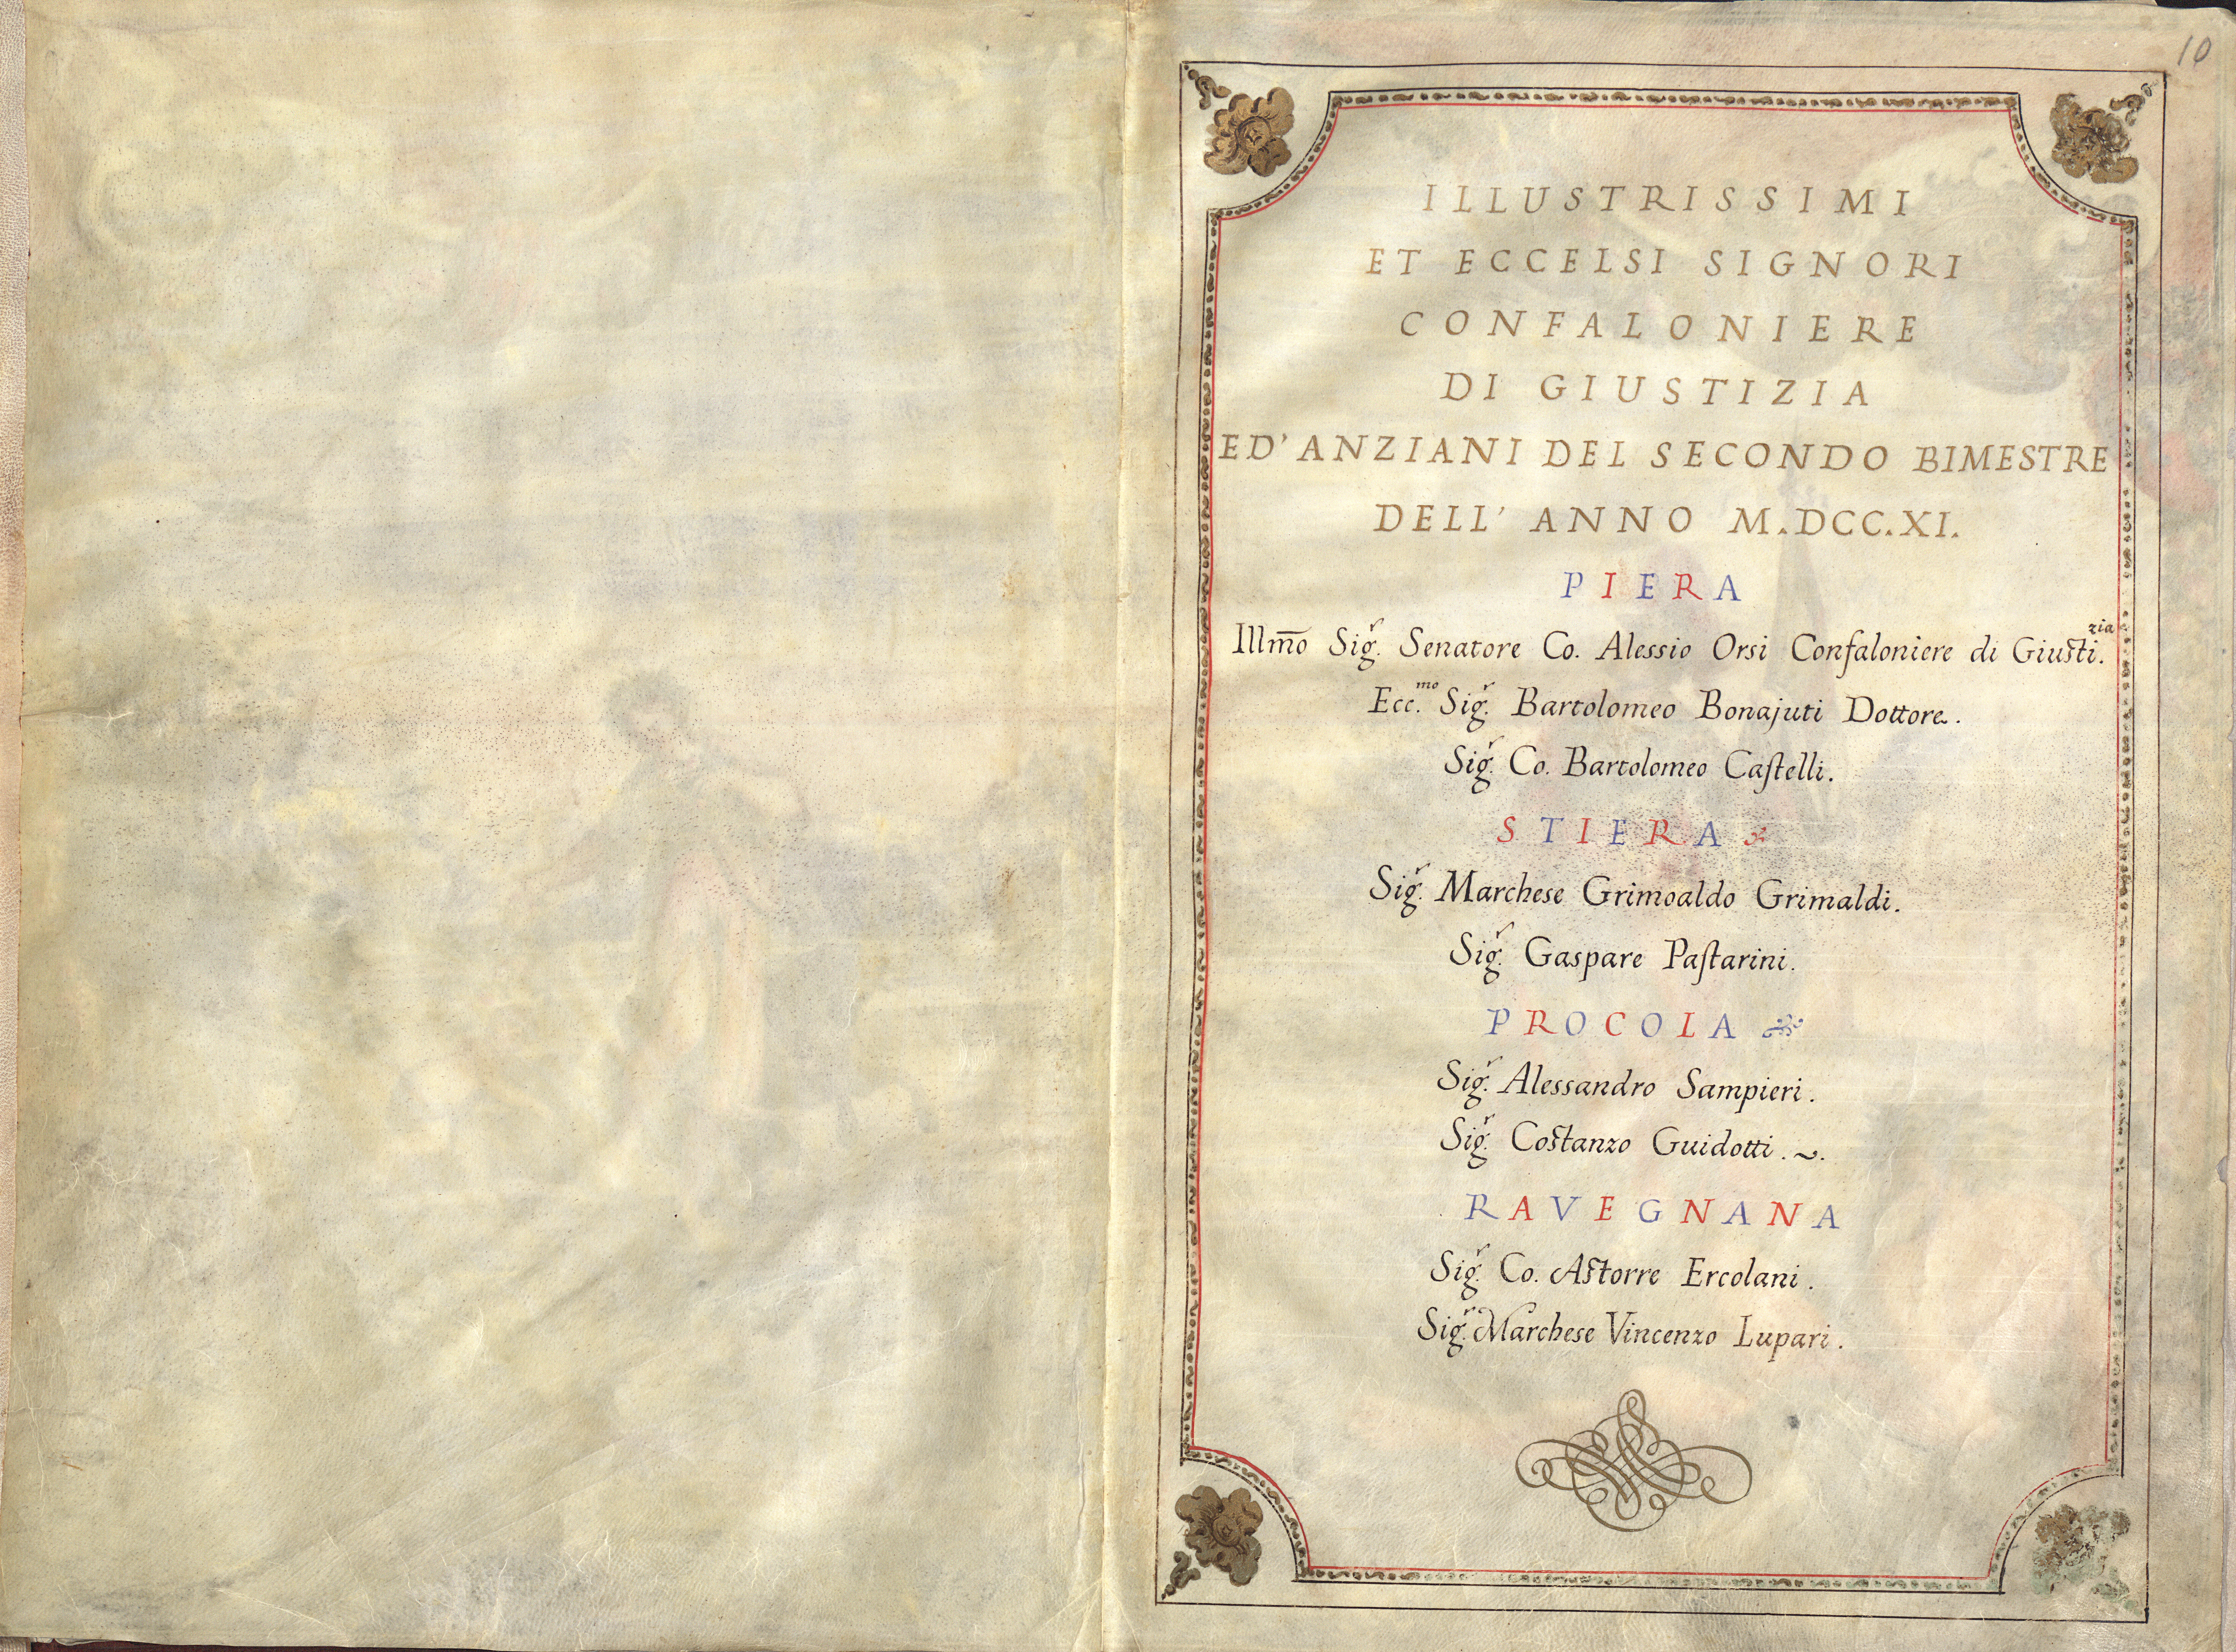 10
ILLUSTRISSIMI
ET ECCELSI SIGNORI
CONFALONIERE
DI GIUSTIZIA
ED' ANZIANI DEL SECONDO BIMESTRE
DELL' ANNO M.DCC.XI.
PIERA
Illm̅o Sig.r Senatore Co. Alessio Orsi Confaloniere di Giusti.zia
Ecc.mo Sig.r Bartolomeo Bonajuti Dottore.
Sig.r Co. Bartolomeo Caſtelli.
STIERA
Sig.r Marchese Grimoaldo Grimaldi.
Sig.r Gaspare Paſtarini.
PROCOLA
Sig.r Alessandro Sampieri.
Sig.r Costanzo Guidotti. ~.
RAVEGNANA
Sig.r Co. Astorre Ercolani.
Sig.r Marchese Vincenzo Lupari.